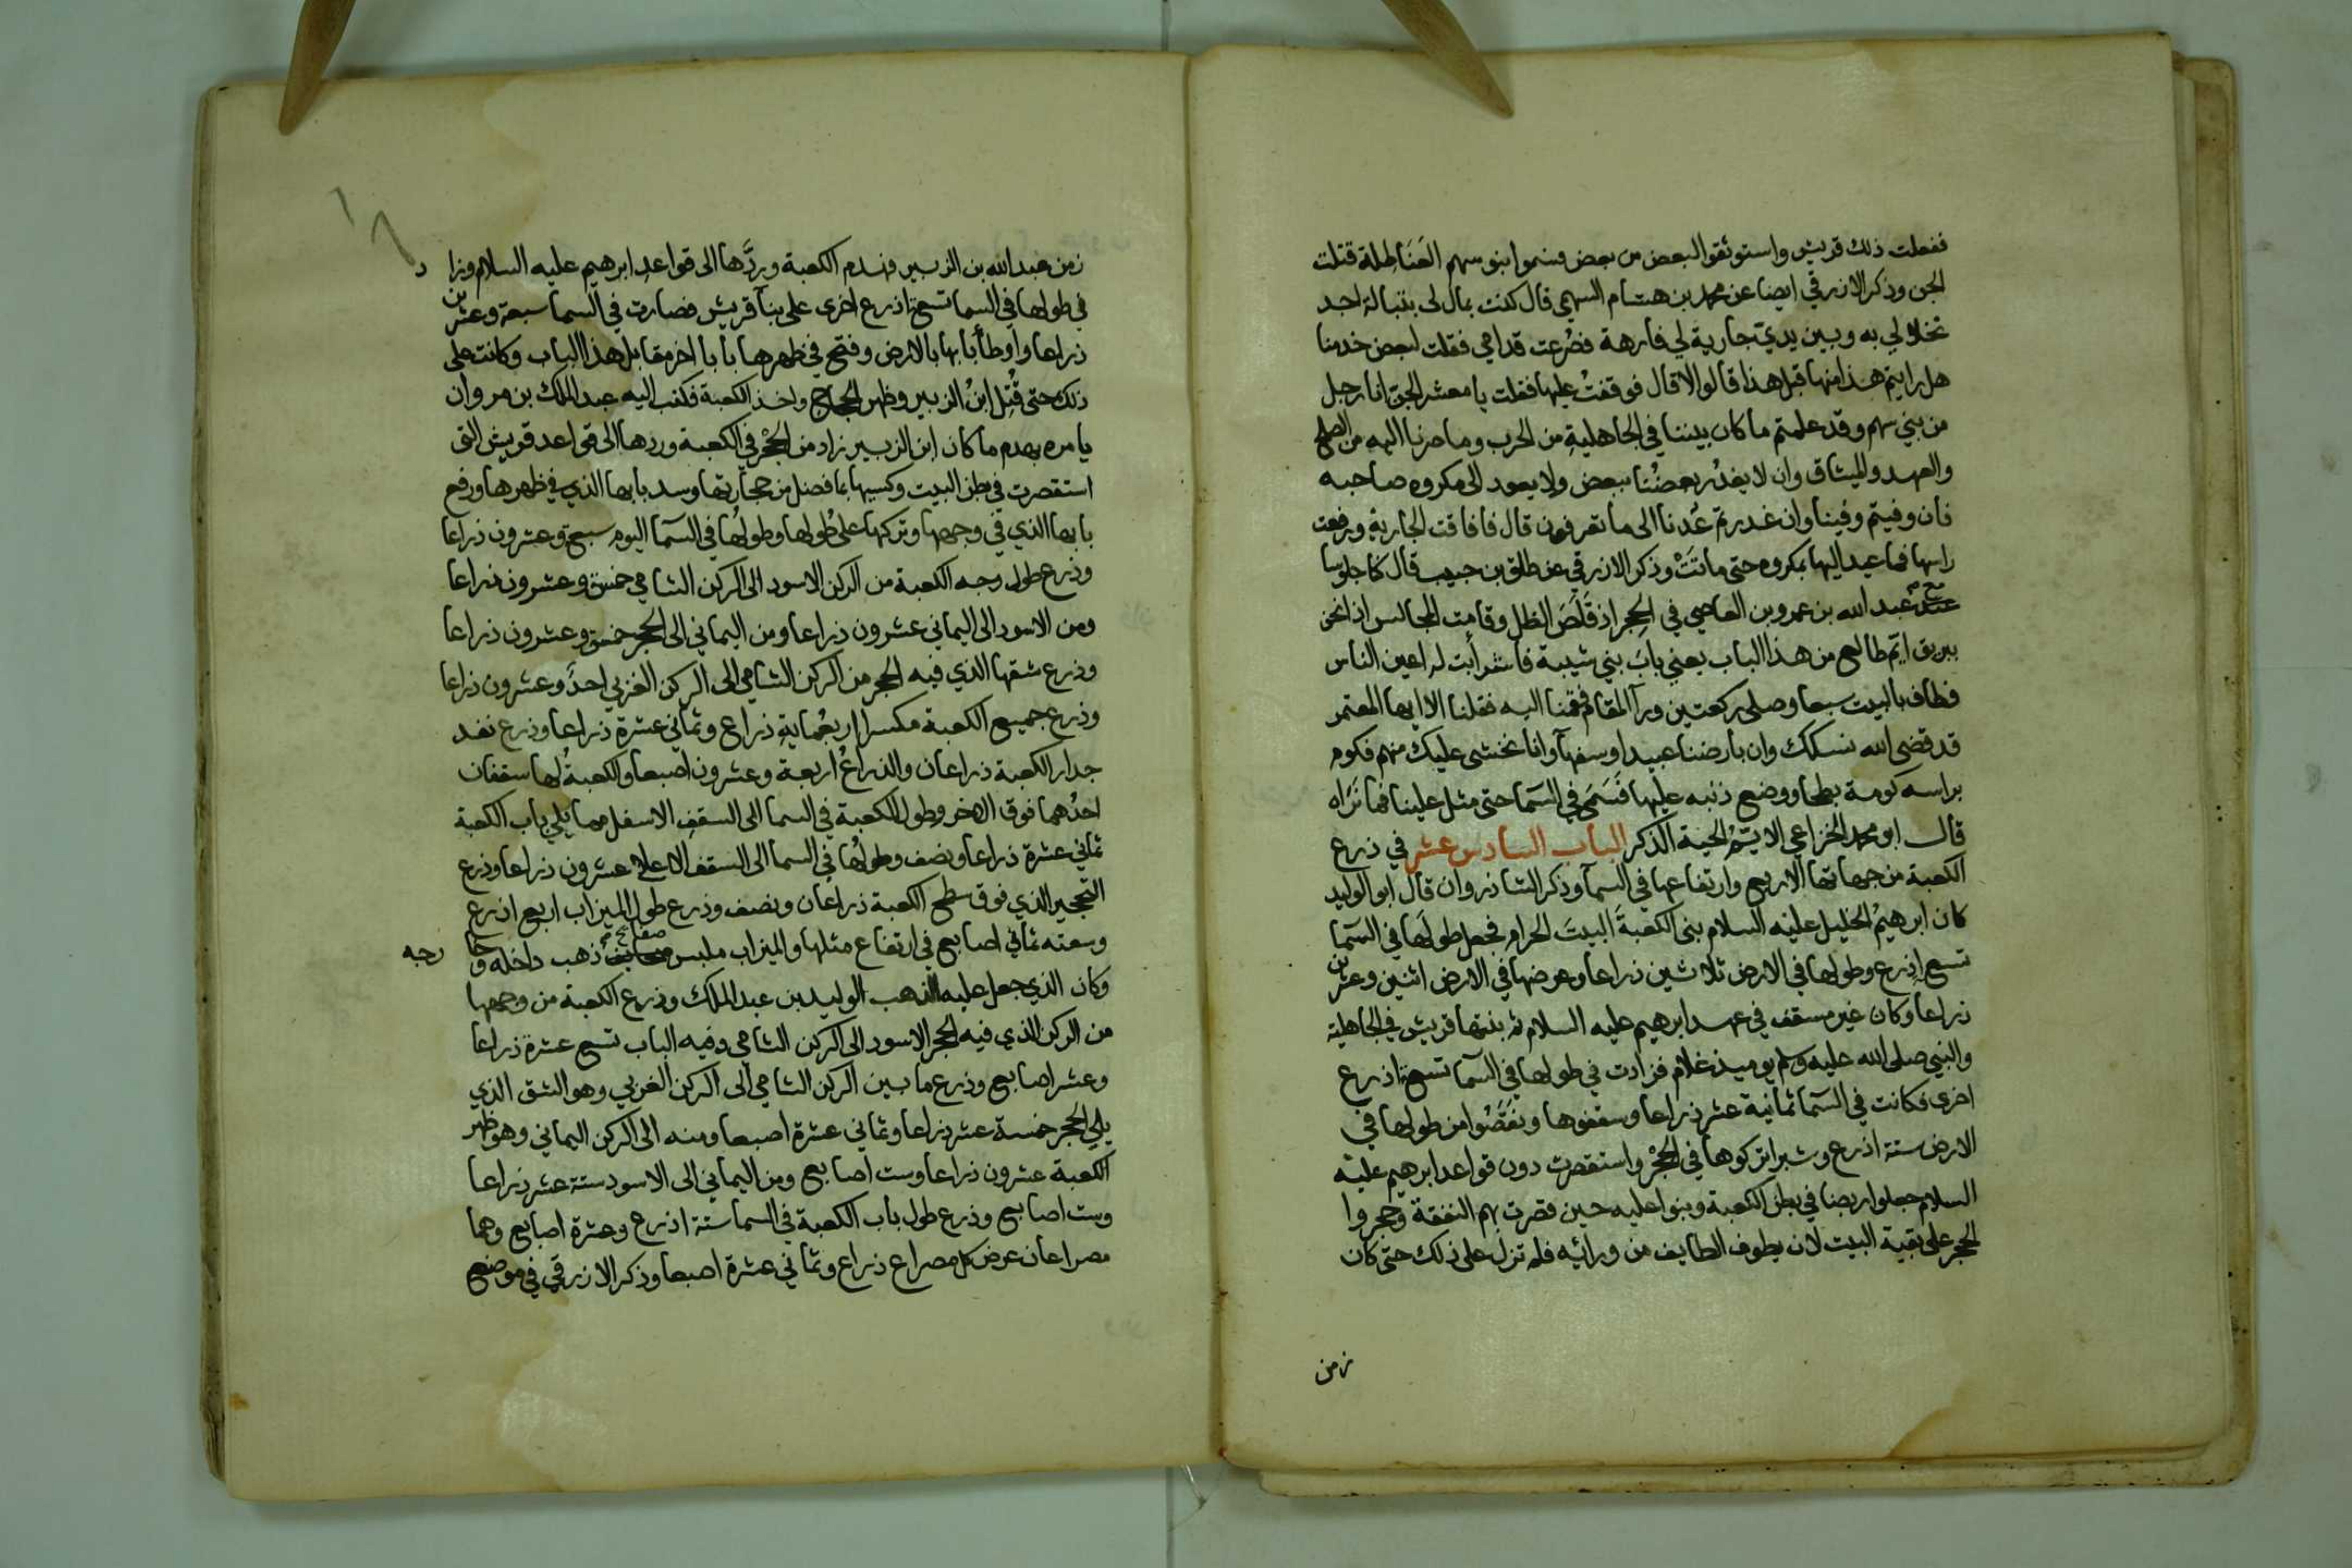 ففعلت ذلك قريش واستوثقوا لبعض من بعض فسموا بنو سهم العَنَاطِلة قتلت
الجن وذكر الازرقي ايضا عن محمد بن هشام السهمي قال كنت بمال لى بتبالة اجد
نخلا لي به وبين يديّ جارية لي فارهة فصُرعت قدامي فقلت لبعض خدمنا
هل رايتم هذا منها قبل هذا قالوا لا قال فوقفتُ عليها فقلت يا معشر الجن انا رجل
من بني سهم وقد علمتم ما كان بيننا في الجاهلية من الحرب وما صرنا اليه من الصلح
والعهد والميثاق وان لا يغدُر بعضُنا ببعض ولا يعود الى مكروه صاحبه
فان وفيتم وفينا وان غدرتم عُدنا الى ما تعرفون قال فافاقت الجارية ورفعت
راسها فما عيد اليها بمكروه حتى ماتَتْ وذكر الازرقي عن طلق بن حبيب قال كنا جلوسا
مع عبد الله بن عمرو بن العاصي في الحِجر اذ قَلَصَ الظل وقامت المجالس اذا نحن
ببريق ايم طالع من هذا الباب يعني باب بني شيبة فاشرأبت له اعين الناس
فطاف بالبيت سبعا وصلى ركعتين ورآ المقام فقمنا اليه فقلنا الا ايها المعتمر
قد قضى الله نسكك وان بارضنا عبيدا وسفهآ وانا نخشى عليك منهم فكوم
براسه كومة بطحا ووضع ذنبه عليها فَسَمَى في السّما حتى مثل علينا فما نَرَاه
قال ابو محمد الخزاعي الايّمُ الحية الذكر الباب السادس عشر في ذرع
الكعبة من جهاتها الاربع وارتفاعها في السمآ وذكر الشاذروان قال ابو الوليد
كان ابرهيمُ الخليل عليه السلام بنى الكعبةَ البيتَ الحرام فجعل طولَها في السّما
تسع اذرع وطولها في الارض ثلاثين ذراعا وعرضها في الارض اثنين وعشرين
ذراعا وكان غير مسقف في عهد ابرهيم عليه السلام ثم بنتها قريش في الجاهلية
والنبي صلى الله عليه وسلم يوميذ غلام فزادت في طولها في السّما تسعة اذرع
اخرى فكانت في السّما ثمانية عشر ذراعا وسقفوها ونَقَصُوا من طولها في
الارض ستة اذرع وشبرا تركوها في الحِجْر واستقصرت دون قواعد ابرهيم عليه
السلام جعلوا ربضا في بطن الكعبة وبنوا عليه حين قصرت بهم النفقة وحجروا
الحجر على بقية البيت لان يطوف الطايف من ورائه فلم تزل على ذلك حتى كان
زمن
زمن عبد الله بن الزبير فهدم الكعبة وردَّها الى قواعد ابرهيم عليه السلام وزاد
في طولها في السما تسعة اذرع اخرى على بنآ قريش فصارت في السما سبعة وعشرين
ذراعا واوطأ بابها بالارض وفتح في ظهرها بابا اخر مقابل هذا الباب وكانت على
ذلك حتى قُتِل ابنُ الزبير وظهر الحجاج واخذ الكعبة فكتب اليه عبد الملك بن مروان
يامره بهدم ما كان ابن الزبير زاد من الحِجْر في الكعبة وردها الى قواعد قريش التى
استقصرت في بطن البيت وكبسها بما فضل من حجارتها وسد بابها الذي في ظهرها ورفع
بابها الذي في وجهها وتركها على طُولها وطولُها في السّما اليوم سبعة وعشرون ذراعا
وذرع طول وجه الكعبة من الركن الاسود الى الركن الشامي خمسة وعشرون ذراعا
ومن الاسود الى اليماني عشرون ذراعا ومن اليماني الى الحجر خمسة وعشرون ذراعا
وذرع شقها الذي فيه الحجر من الركن الشامي الى الركن الغربي احدٌ وعشرون ذراعا
وذرع جميع الكعبة مكسرا اربعُماية ذراع وثماني عشرة ذراعا وذرع نفد
جدار الكعبة ذراعان والذراعُ اربعة وعشرون اصبعا والكعبةُ لها سقفان
احدُهما فوق الاخر وطول الكعبة في السما الى السقف الاسفل مما يلي باب الكعبة
ثماني عشرة ذراعا ونصف وطولُها في السما الى السقف الاعلا عشرون ذراعا وذرع
التحجير الذي فوق سطح الكعبة ذراعان ونصف وذرع طول الميزاب اربع اذرع
وسعته ثماني اصابع في ارتفاع مثلها والميزاب ملبس صفايح ذهب داخله وخارجه
وكان الذي جعل عليه الذهب الوليد بن عبد الملك وذرع الكعبة من وجهها
من الركن الذي فيه الحجر الاسود الى الركن الشامي وفيه الباب تسع عشرة ذراعا
وعشر اصابع وذرع ما بين الركن الشامي الى الركن الغربي وهو الشق الذي
يلي الحجر خمسة عشر ذراعا وثماني عشرة اصبعا ومنه الى الركن اليماني وهو ظهر
الكعبة عشرون ذراعا وست اصابع ومن اليماني الى الاسود ستة عشر ذراعا
وست اصابع وذرع طول باب الكعبة في السما ستة اذرع وعشرة اصابع وهما
مصراعان عرض كل مصراع ذراع وثماني عشرة اصبعا وذكر الازرقي في موضع